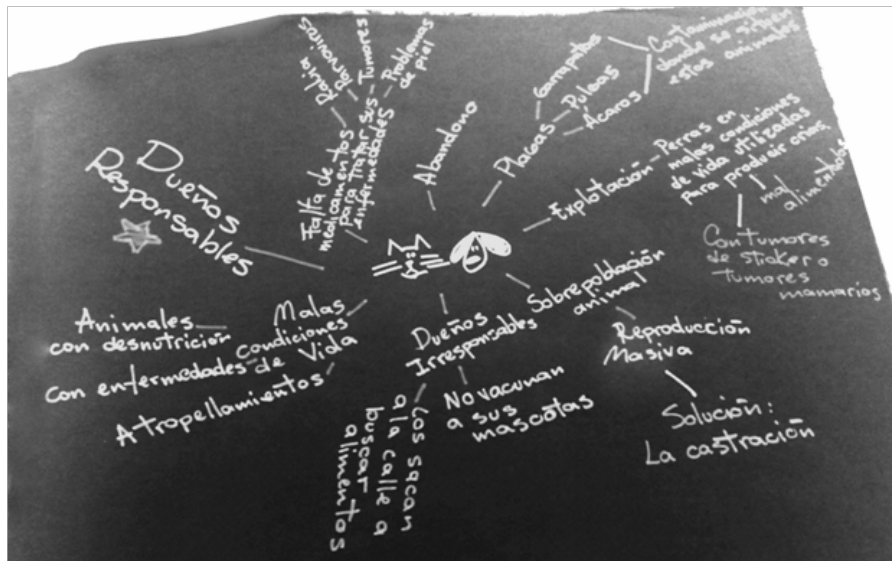 Dueños
Responsables
Rabia
Parvovirus
Tumores
Problemas
de piel
Falta de
medicamentos
para tratar sus
enfermedades
Abandono
Plagas
Garrapatas
Pulgas
Ácaros
Contaminación
donde se sitúen
estos animales
Explotación
Perras en
malas condiciones
de vida utilizadas
para producir crías
mal
alimentadas
Con tumores
de sticker o
tumores
mamarios
Sobrepoblación
animal
Reproducción
Masiva
Solución:
La castración
Dueños
Irresponsables
No vacunan
a sus
mascotas
Los sacan
a la calle a
buscar
alimentos
Malas
condiciones
de Vida
Animales
con desnutrición
Con enfermedades
Atropellamientos